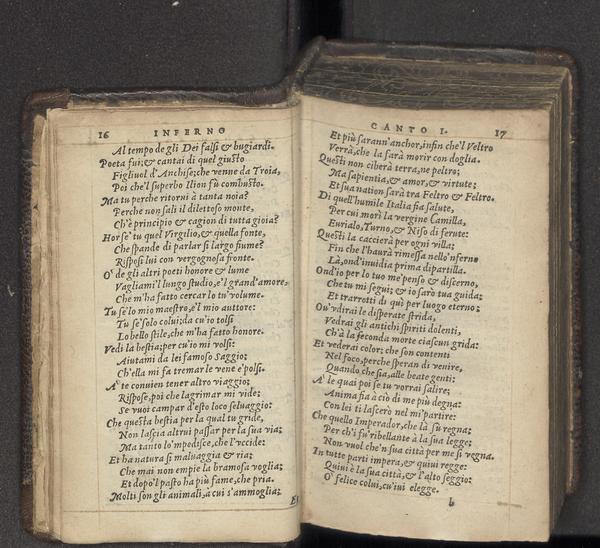 16 INFERNO
Al tempo de gli Dei falsi & bugiardi.
Poeta fui; & cantai di quel giusto
Figliuol d'Anchise; che venne da Troia,
Poi che'l superbo Ilion fù combusto.
Ma tu perche ritorni à tanta noia?
Perche non sali il dilettoso monte,
Ch'è principio & cagion di tutta gioia?
Hor se' tu quel Virgilio, & quella fonte,
Che spande di parlar si largo fiume?
Risposi lui con vergognosa fronte.
O' de gli altri poeti honore & lume
Vagliami'l lungo studio, e'l grand'amore,
Che m'ha fatto cercar lo tu' volume.
Tu se' lo mio maestro, e'l mio auttore:
Tu se' solo colui; da cu'io tolsi
Lo bello stile, che m'ha fatto honore.
Vedi la bestia; per cu'io mi volsi:
Aiutami da lei famoso Saggio;
Ch'ella mi fa tremar le vene e' polsi.
A' te convien tener altro viaggio;
Rispose, poi che lagrimar mi vide;
Se vuoi campar d'esto loco selvaggio:
Che questa bestia per la qual tu gride,
Non lascia altrui passar per la sua via;
Ma tanto lo'mpedisce, che l'vccide:
Et ha natura si maluaggia & ria;
Che mai non empie la bramosa voglia;
Et dopo'l pasto ha più fame, che pria.
Molti son gli animali, à cui s'ammoglia;
Et
CANTO I. 17
Et più sarann'anchor, infin che'l Veltro
Verrà, che la farà morir con doglia.
Questi non ciberà terra, ne peltro;
Ma sapientia, & amor, & virtute;
Et sua nation sarà tra Feltro & Feltro.
Di quell'humile Italia fia salute,
Per cui morì la vergine Camilla,
Eurialo, Turno, & Niso di ferute:
Questi la caccierà per ogni villa;
Fin che l'haurà rimessa nello'nferno
Là, ond'inuidia prima dipartilla.
Ond'io per lo tuo me' penso & discerno,
Che tu mi segui; & io sarò tua guida;
Et trarrotti di quì per luogo eterno;
Ou'vdirai le disperate strida,
Vedrai gli antichi spiriti dolenti,
Ch'à la seconda morte ciascun grida:
Et vederai color; che son contenti
Nel foco, perche speran di venire,
Quando che sia, alle beate genti:
A' le quai poi se tu vorrai salire;
Anima fia à ciò di me più degna:
Con lei ti lascerò nel mi' partire:
Che quello Imperador, che là sù regna;
Per ch'i fu' ribellante à la sua legge;
Non vuol che'n sua città per me si vegna.
In tutte parti impera, & quivi regge:
Quivi è la sua città, & l'alto seggio:
O' felice colui, cu'ivi elegge.
b